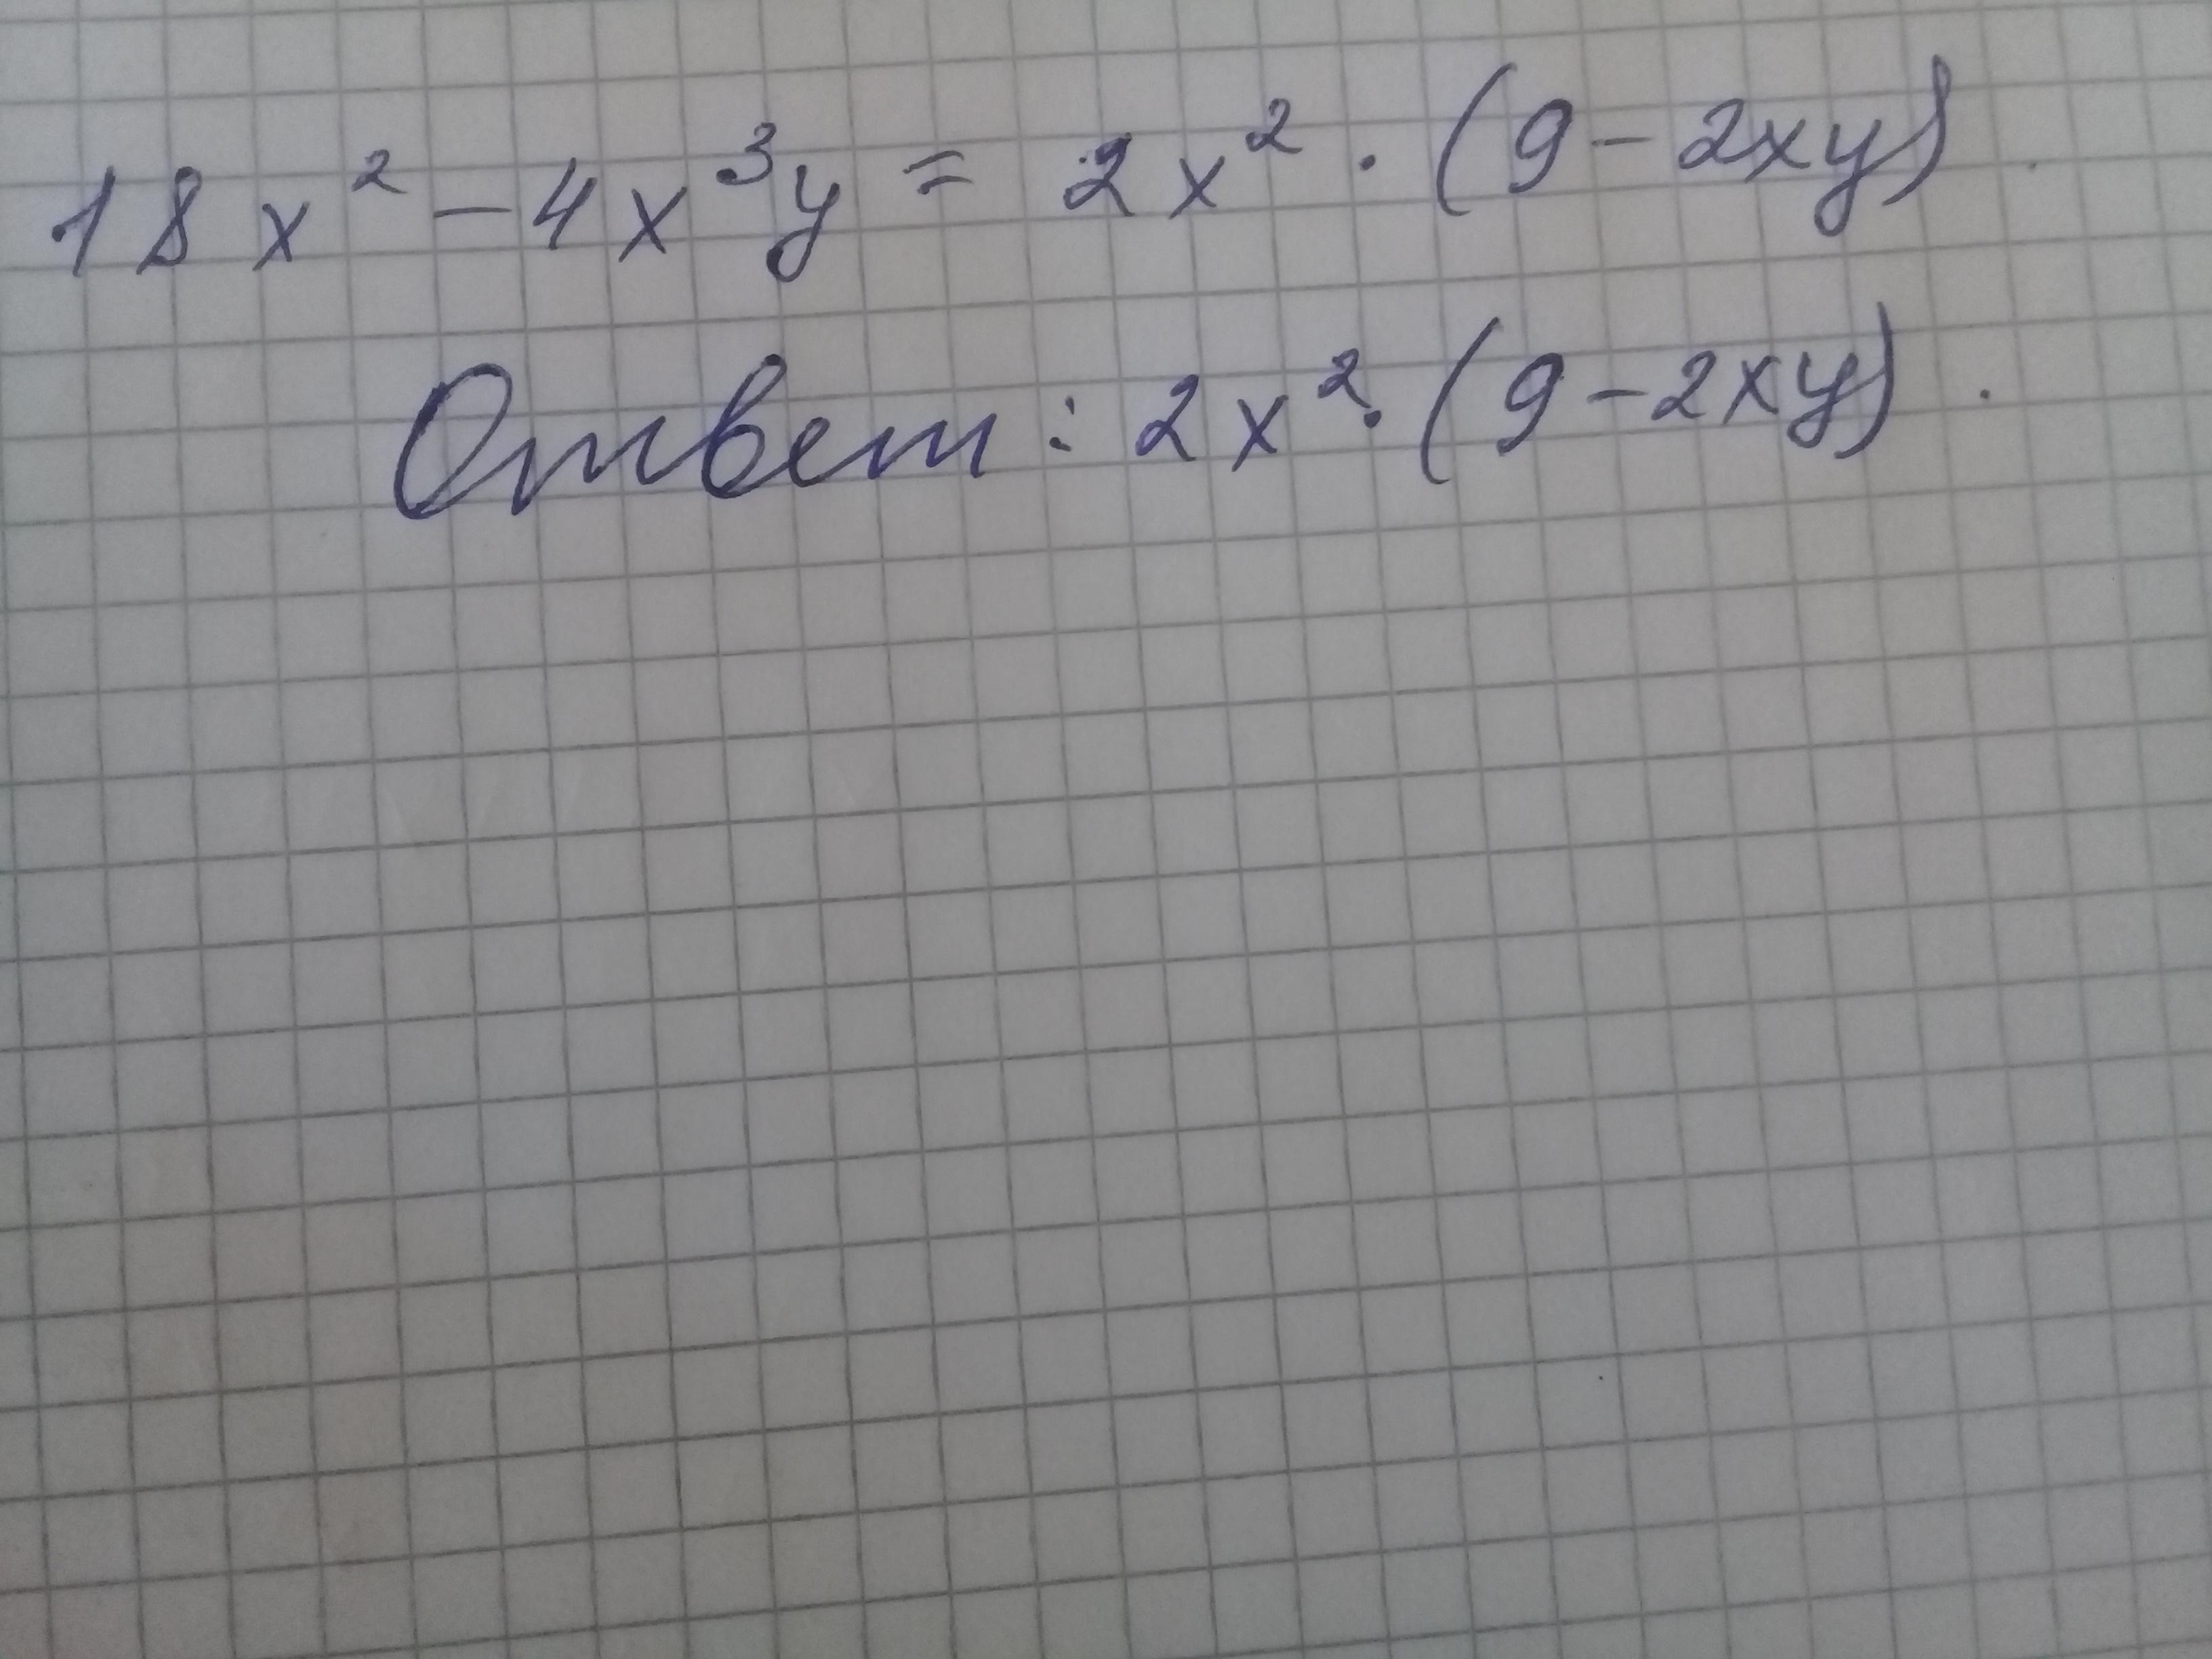 18x² - 4x³y = 2x² · (9 - 2xy)
Ответ: 2x² · (9 - 2xy).